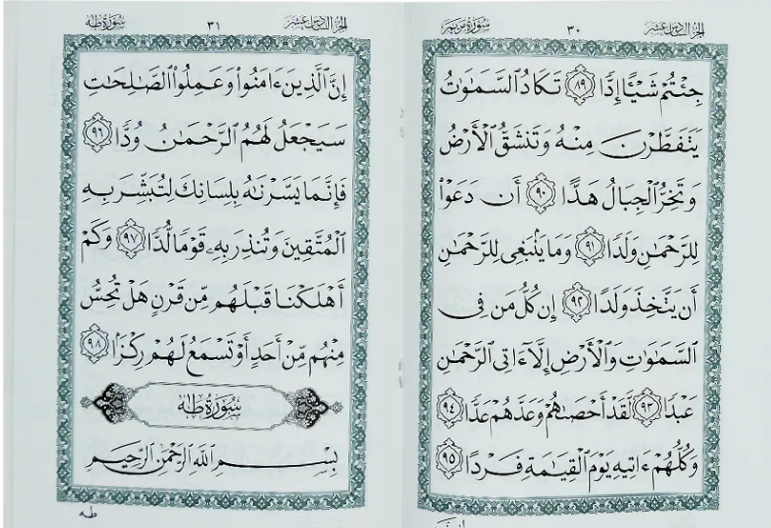 الجزء السادس عشر ٣٠ سورة مريم
جِئْتُمْ شَيْـًٔا إِدًّا ٨٩ تَكَادُ ٱلسَّمَـٰوَٰتُ
يَتَفَطَّرْنَ مِنْهُ وَتَنشَقُّ ٱلْأَرْضُ
وَتَخِرُّ ٱلْجِبَالُ هَدًّا ٩٠ أَن دَعَوْا۟
لِلرَّحْمَـٰنِ وَلَدًا ٩١ وَمَا يَنۢبَغِى لِلرَّحْمَـٰنِ
أَن يَتَّخِذَ وَلَدًا ٩٢ إِن كُلُّ مَن فِى
ٱلسَّمَـٰوَٰتِ وَٱلْأَرْضِ إِلَّآ ءَاتِى ٱلرَّحْمَـٰنِ
عَبْدًا ٩٣ لَّقَدْ أَحْصَىٰهُمْ وَعَدَّهُمْ عَدًّا ٩٤
وَكُلُّهُمْ ءَاتِيهِ يَوْمَ ٱلْقِيَـٰمَةِ فَرْدًا ٩٥
الجزء السادس عشر ٣١ سورة طه
إِنَّ ٱلَّذِينَ ءَامَنُوا۟ وَعَمِلُوا۟ ٱلصَّـٰلِحَـٰتِ
سَيَجْعَلُ لَهُمُ ٱلرَّحْمَـٰنُ وُدًّا ٩٦
فَإِنَّمَا يَسَّرْنَـٰهُ بِلِسَانِكَ لِتُبَشِّرَ بِهِ
ٱلْمُتَّقِينَ وَتُنذِرَ بِهِۦ قَوْمًا لُّدًّا ٩٧ وَكَمْ
أَهْلَكْنَا قَبْلَهُم مِّن قَرْنٍ هَلْ تُحِسُّ
مِنْهُم مِّنْ أَحَدٍ أَوْ تَسْمَعُ لَهُمْ رِكْزًۢا ٩٨
سورة طه
بِسْمِ ٱللَّهِ ٱلرَّحْمَـٰنِ ٱلرَّحِيمِ
طه